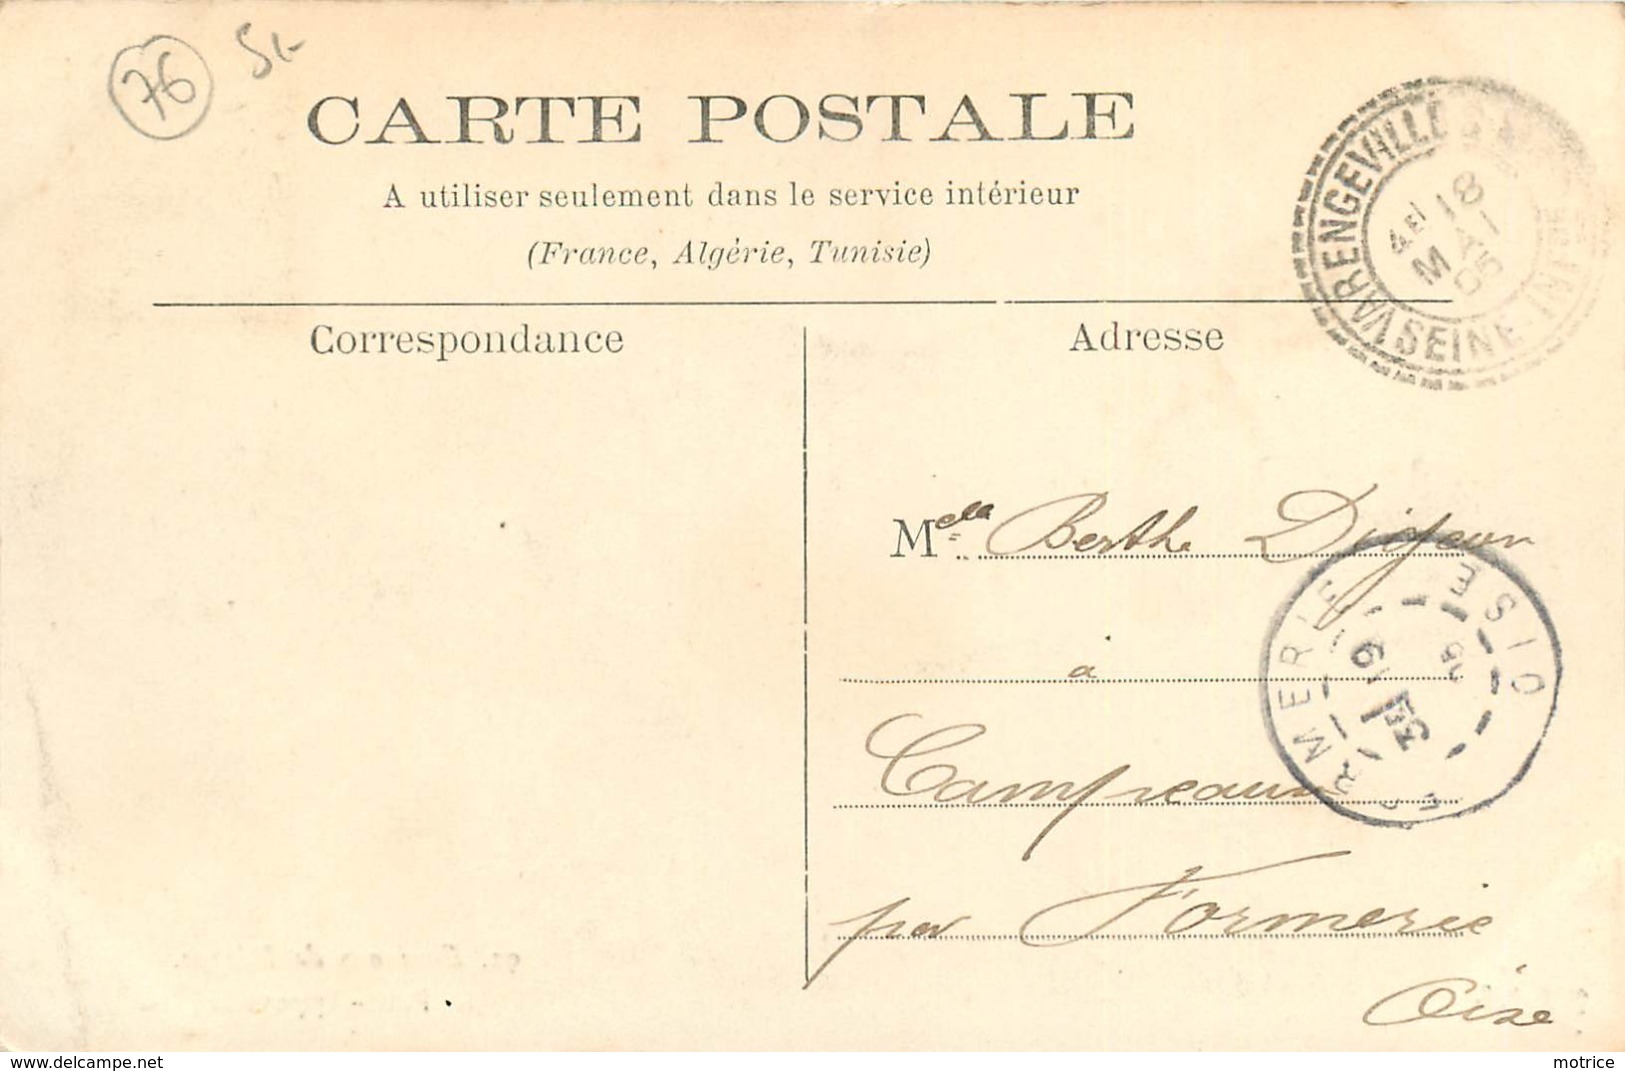 76 5-
CARTE POSTALE
A utiliser seulement dans le service intérieur
(France, Algérie, Tunisie)
VARENGEVILLE
4E 18
MAI
05
SEINE-INF
Correspondance
Adresse
Melle Berthe
à
Campeaux
par Formerie
Oise
FORMERIE
OISE
19
05
www.delcampe.net
motrice